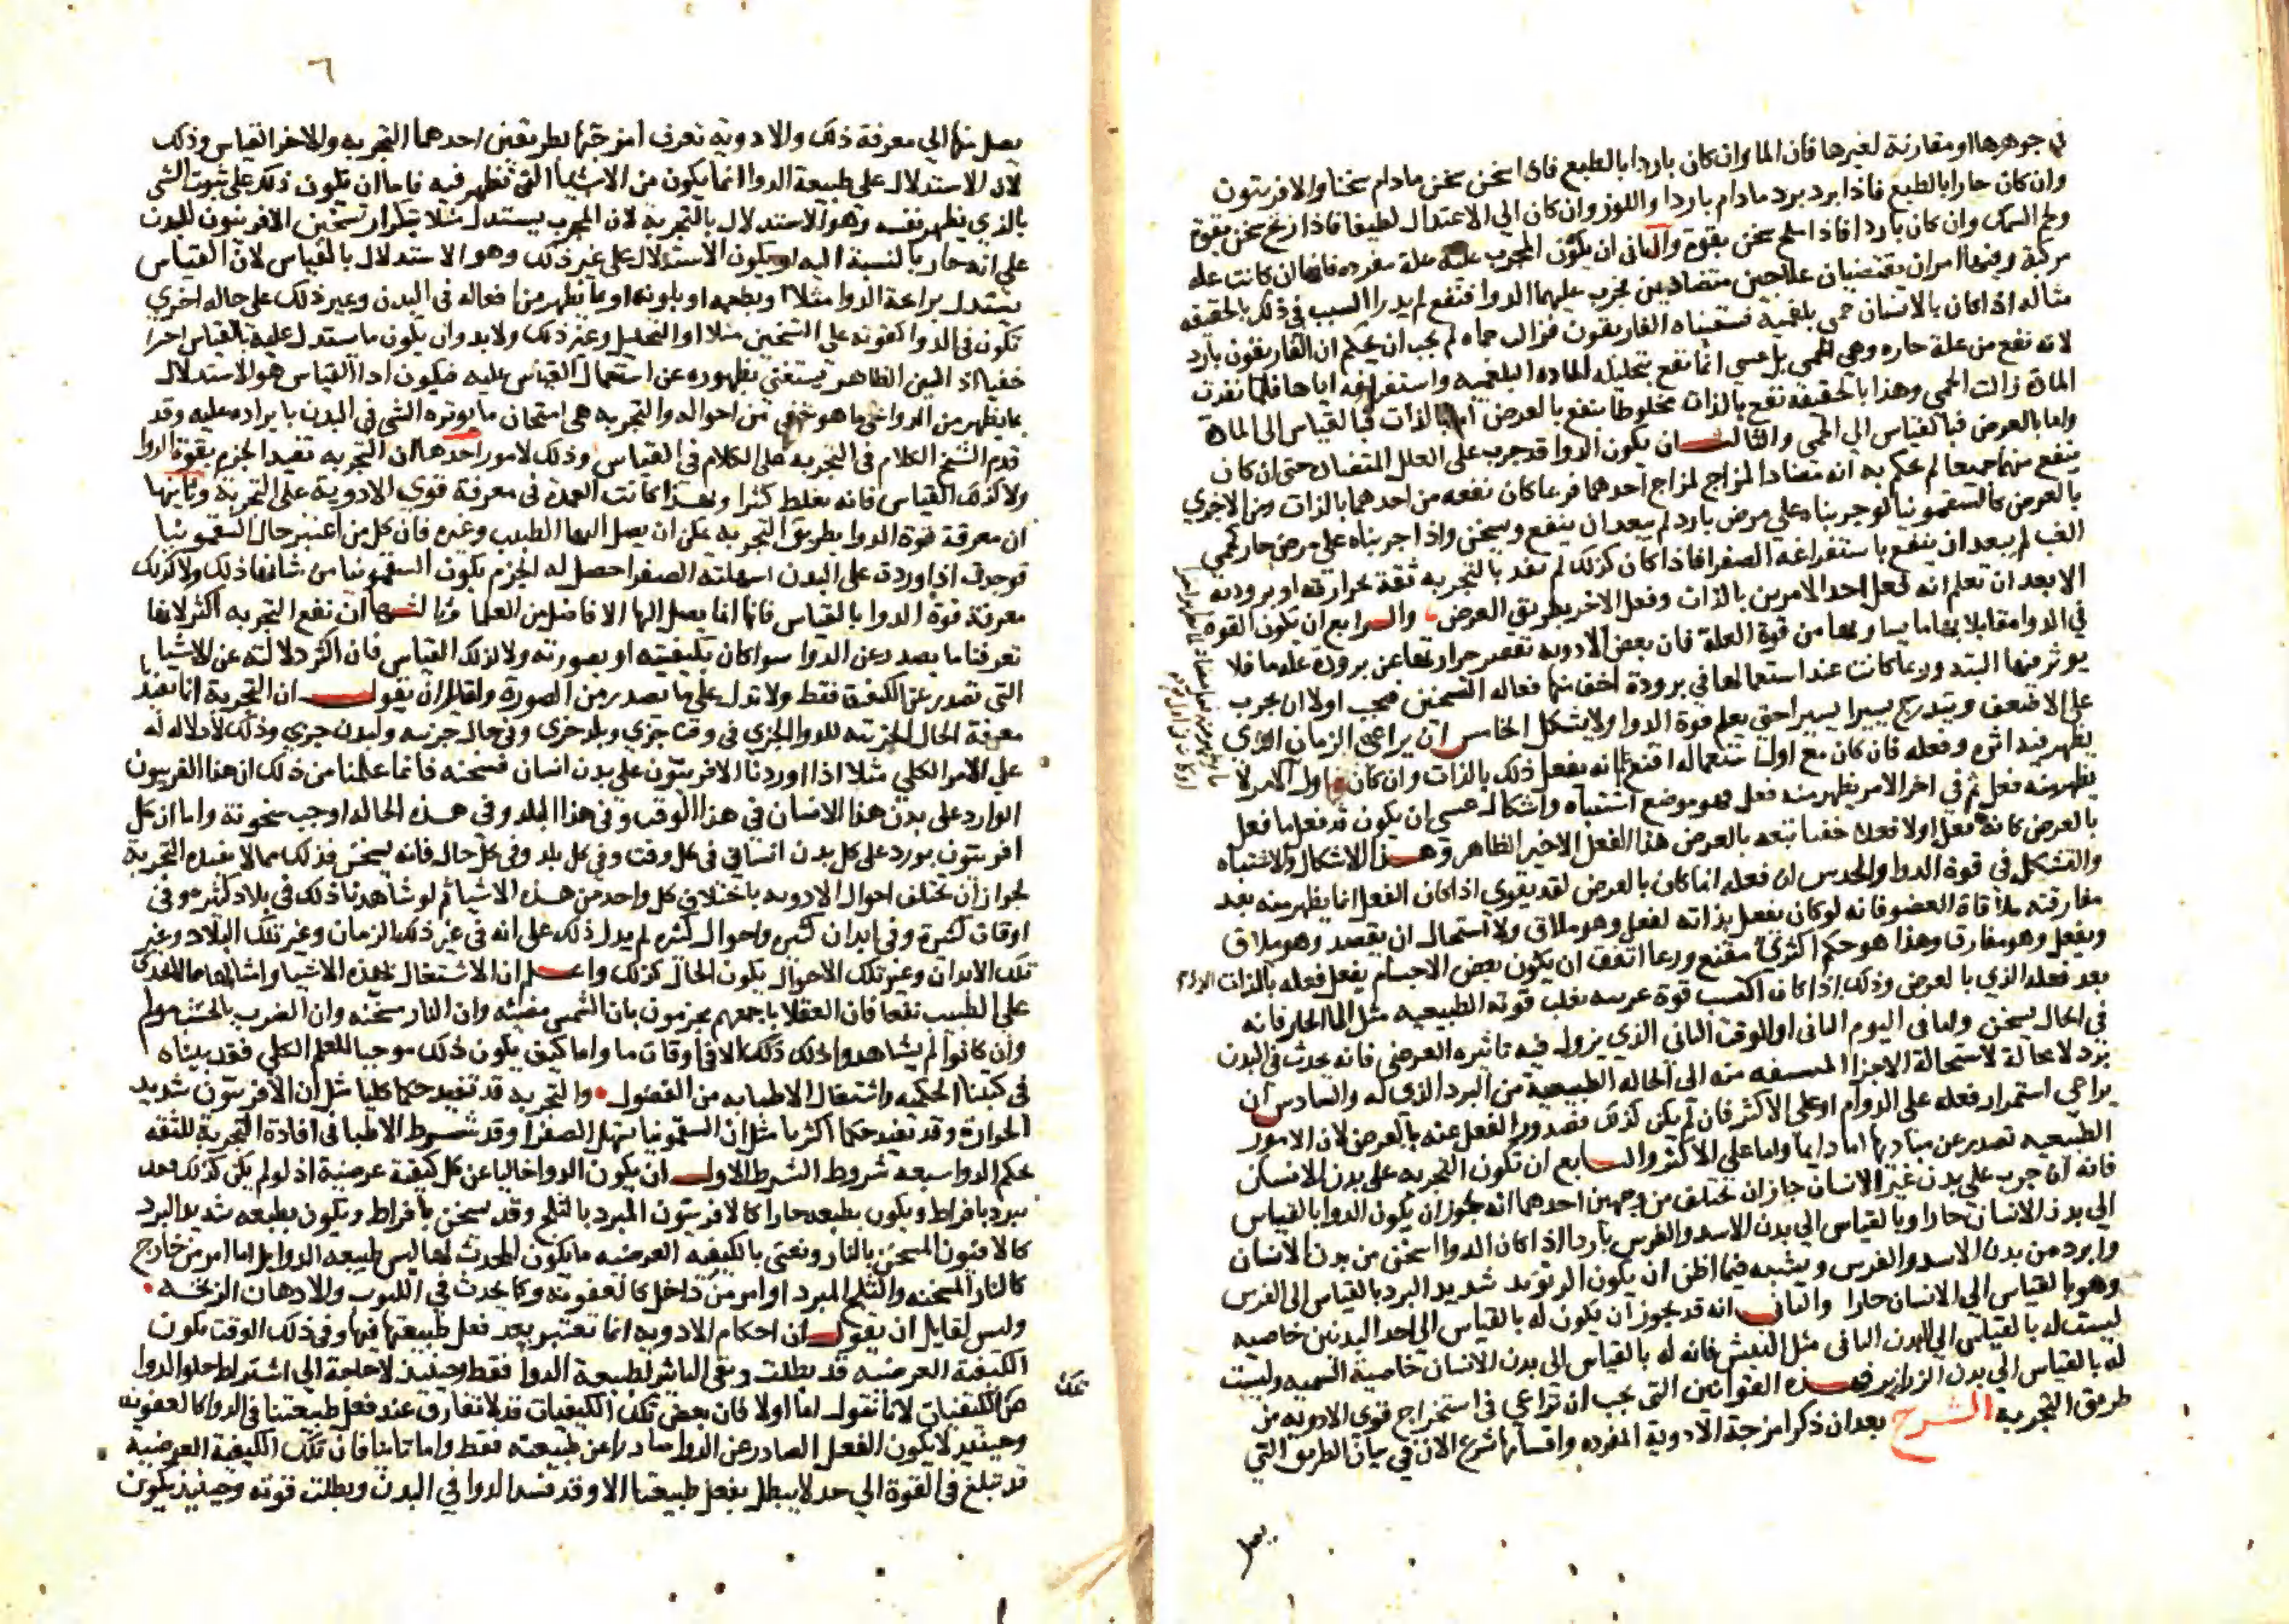 في جوهرها او مقارنة لغيرها فان الما وان كان باردا بالطبع فاذا سخن سخن مادام سخنا والافربيون
وان كان حارا بالطبع فاذا برد برد مادام باردا واللوز وان كان الي الاعتدال لطيفا فاذا زنخ سخن بقوة
ولحم السمك وان كان باردا فاذا ملح سخن بقوة والثاني ان يكون المجرب عليه علة مفرده فانها ان كانت علة
مركبة وفيها امران يقتضيان علاجين متضادين فجرب عليهما الدوا فنفع لم يدرا السبب في ذلك بالحقيقه
مثاله اذا كان بالانسان حمي بلغمية فسقيناه الغاريقون فزالت حماه لم يجب ان يحكم ان الغاريقون بارد
لانه نفع من علة حاره وهي الحمي بل عسي انما نفع بتحليله الماده البلغميه واستفراغه اياها فلما نفدت
المادة زالت الحمي وهذا بالحقيقة نفع بالذات مخلوطا بنفع بالعرض اما بالذات فبالقياس الي المادة
واما بالعرض فبالقياس الي الحمي والثالث ان يكون الدوا قد جرب على العلل المتضاده حتي ان كان
ينفع منهما جميعا لم يحكم به انه مضاد المزاج لمزاج احدهما فربما كان نفعه من احدهما بالذات ومن الاخري
بالعرض كالسقمونيا لو جربناه علي مرض بارد لم يبعد ان ينفع ويسخن واذا جربناه علي مرض حار كحمي
الغب لم يبعد ان ينفع باستفراغه الصفرا فاذا كان كذلك لم تفد بالتجربه ثقة بحرارته او برودته
الا بعد ان تعلم انه فعل احد الامرين بالذات وفعل الاخر بطريق العرض والرابع ان يكون القوه
في الدوا مقابلا بها ما يساويها من قوة العلة فان بعض الادويه تقصر حرارتها عن برودة علة ما فلا
يوثر فيها البته وربما كانت عند استعمالها في برودة اخف منها فعاله التسخين فيجب اولا ان يجرب
علي الاضعف ويتدرج يسيرا يسيرا حتي يعلم قوة الدوا ولا يشكل الخامس ان يراعي الزمان الذي
يظهر فيه اثره وفعله فان كان مع اول استعماله اقنع انه يفعل ذلك بالذات وان كان اول الامر لا
يظهر منه فعل ثم في اخر الامر يظهر منه فعل فهو موضع اشتباه واشكال عسي ان يكون قد فعل ما فعل
بالعرض كانه فعل اولا فعلا خفيا تبعه بالعرض هذا الفعل الاخير الظاهر وهذا الاشكال والاشتباه
والتشكل في قوة الدوا والحدس ان فعله انما كان بالعرض لقد يقوي اذا كان الفعل انما يظهر منه بعد
مفارقته ملاقاة العضو فانه لو كان يفعل بذاته لفعل وهو ملاق ولاستحال ان يقصر وهو ملاق
ويفعل وهو مفارق وهذا هو حكم اكثري مقنع وربما اتفق ان يكون بعض الاجسام يفعل فعله بالذات
بعد فعله الذي بالعرض وذلك اذا كان اكتسب قوة غريبه يغلب قوته الطبيعيه مثل الما الحار فانه
في الحال يسخن واما في اليوم الثاني او الوقت الثاني الذي يزول فيه تاثيره العرضي فانه يحدث في البدن
بردا لا محالة لاستحالة الاجزا منه الي الحاله الطبيعية من البرد الذي له والسادس ان
يراعي استمرار فعله على الدوام او على الاكثر فان لم يكن كذلك فصدور الفعل عنه بالعرض لان الامور
الطبيعيه تصدر عن مباديها اما دايما واما علي الاكثر والسابع ان تكون التجربه على بدن الانسان
فانه ان جرب على بدن غير الانسان جاز ان تختلف من وجهين احدهما انه يجوز ان يكون الدوا بالقياس
الي بدن الانسان حارا وبالقياس الي بدن الاسد والفرس باردا اذا كان الدوا اسخن من بدن الانسان
وابرد من بدن الاسد والفرس ويشبه فيما اظن ان يكون الريوند شديد البرد بالقياس الى الفرس
وهو بالقياس الي الانسان حارا والثاني انه قد يجوز ان يكون له بالقياس الي احد البدنين خاصيه
ليست له بالقياس الي البدن الثاني مثل البيش فانه له بالقياس الى بدن الانسان خاصية السميه وليست
له بالقياس الي بدن الزرازير فهذه القوانين التي يجب ان تراعي في استخراج قوي الادويه من
طريق التجربه الشرح بعد ان ذكر امزجة الادوية المفرده واقسامها شرع الان في بيان الطريق التي
يصل
٦
يصل منها الي معرفة ذلك والادوية تعرف امزجتها بطريقين احدهما التجربه والاخر القياس وذلك
لان الاستدلال علي طبيعة الدوا انما يكون من الاشيا التي تظهر فيه فاما ان يكون ذلك على ثبوت الشي
بالذي يظهر نفسه وهو الاستدلال بالتجربة لان المجرب يستدل مثلا بتكرار تسخين الافربيون للبدن
علي انه حار بالنسبة اليه او يكون الاستدلال على غير ذلك وهو الاستدلال بالقياس لان القياس
يستدل برايحة الدوا مثلا او بطعمه او بلونه او بما يظهر من افعاله في البدن وغير ذلك على حاله اخري
تكون في الدوا كقوته على التسخين مثلا او التحليل وغير ذلك ولا بد وان يكون ما يستدل عليه بالقياس امرا
خفيا اذ البين الظاهر يستغني بظهوره عن استعمال القياس عليه فيكون اذا القياس هو الاستدلال
بما يظهر من الدوا علي ما هو خفي من احواله والتجربه هي امتحان ما يوثره الشي في البدن بايراده عليه وقد
قدم الشيخ الكلام في التجربه على الكلام في القياس وذلك لامور احدها ان التجربه تفيد الجزم بقوة الدوا
ولا كذلك القياس فانه يغلط كثيرا ولهذا كانت العمدة في معرفة قوي الادوية على التجربة وثانيها
ان معرفة قوة الدوا بطريق التجربه يمكن ان يصل اليها الطبيب وغيره فان كل من اعتبر حال السقمونيا
فوجدت اذا وردت على البدن اسهلته الصفرا حصل له الجزم بكون السقمونيا من شانها ذلك ولا كذلك
معرفة قوة الدوا بالقياس فانها انما يصل اليها الافاضل من العلما وثالثها ان نفع التجربه اكثر لانها
تعرفنا ما يصدر عن الدوا سوا كان بكيفيته او بصورته ولا كذلك القياس فان اكثر دلالته عن الاشيا
التي تصدر عن الكيفية فقط ولا تدل على ما يصدر من الصورة ولقايل ان يقول ان التجربة انما تفيد
معرفة الحال الجزئيه للدوا الجزي في وقت جزي وبلد جزي وفي حال جزئيه ولبدن جزي وذلك لا دلاله له
على الامر الكلي مثلا اذا اوردنا الافربيون على بدن انسان فسخنه فانما علمنا من ذلك ان هذا الفربيون
الوارد على بدن هذا الانسان في هذا الوقت وفي هذا البلد وفي هذه الحاله اوجب سخونة واما ان كل
افربيون يورد على كل بدن انساني في كل وقت وفي كل بلد وفي كل حال فانه يسخن فذلك مما لا تفيده التجربة
لجواز ان تختلف احوال الادويه باختلاف كل واحد من هذه الاشيا ثم لو شاهدنا ذلك في بلاد كثيره وفي
اوقات كثيرة وفي ابدان كثيره واحوال كثيره لم يدل ذلك على انه في غير ذلك الزمان وغير تلك البلاد وغير
تلك الابدان وغير تلك الاحوال يكون الحال كذلك واعلم ان الاشتغال بهذه الاشيا وامثالها مما لا يجدي
على الطبيب نفعا فان العقلا باجمعهم يجزمون بان الشمس مضيئه وان النار مسخنه وان الضرب بالخشب مولم
وان كانوا لم يشاهدوا ذلك كذلك الا في اوقات ما واما كيف يكون ذلك موجبا للعلم الكلي فقد بيناه
في كتبنا الحكميه واشتغال الاطبا به من الفضول والتجربه قد تفيد حكما كليا مثل ان الافربيون شديد
الحرارة وقد تفيد حكما اكثريا مثل ان السقمونيا تسهل الصفرا وقد شرط الاطبا في افادة التجربة للثقه
بحكم الدوا سبعه شروط الشرط الاول ان يكون الدوا خاليا عن كل كيفية عرضية اذ لو لم يكن كذلك فقد
يبرد بافراط ويكون بطبعه حارا كالافربيون المبرد بالثلج وقد يسخن بافراط ويكون بطبعه شديد البرد
كالافيون المسخن بالنار ونعني بالكيفيه العرضيه ما يكون المحدث لها ليس طبيعه الدوا بل اما امر من خارج
كالنار المسخنه والثلج المبرد او امر من داخل كالعفونه وكما يحدث في اللبوب والادهان الزنخه
وليس لقايل ان يقول ان احكام الادويه انما تعتبر بعد فعل طبيعتنا فيها وفي ذلك الوقت تكون
الكيفية العرضيه قد بطلت وبقي التاثير لطبيعة الدوا فقط وحينيذ لا حاجة الي اشتراط خلو الدوا
عن الكيفيات لانا نقول اما اولا فان بعض تلك الكيفيات قد لا تفارق عند فعل طبيعتنا في الدوا كالعفونه
وحينيذ لا يكون الفعل الصادر عن الدوا صادرا عن طبيعته فقط واما ثانيا فان تلك الكيفية العرضية
قد تبلغ في القوة الي حد لا يبطل بفعل طبيعتنا الا وقد فسد الدوا في البدن وبطلت قوته وحينيذ يكون